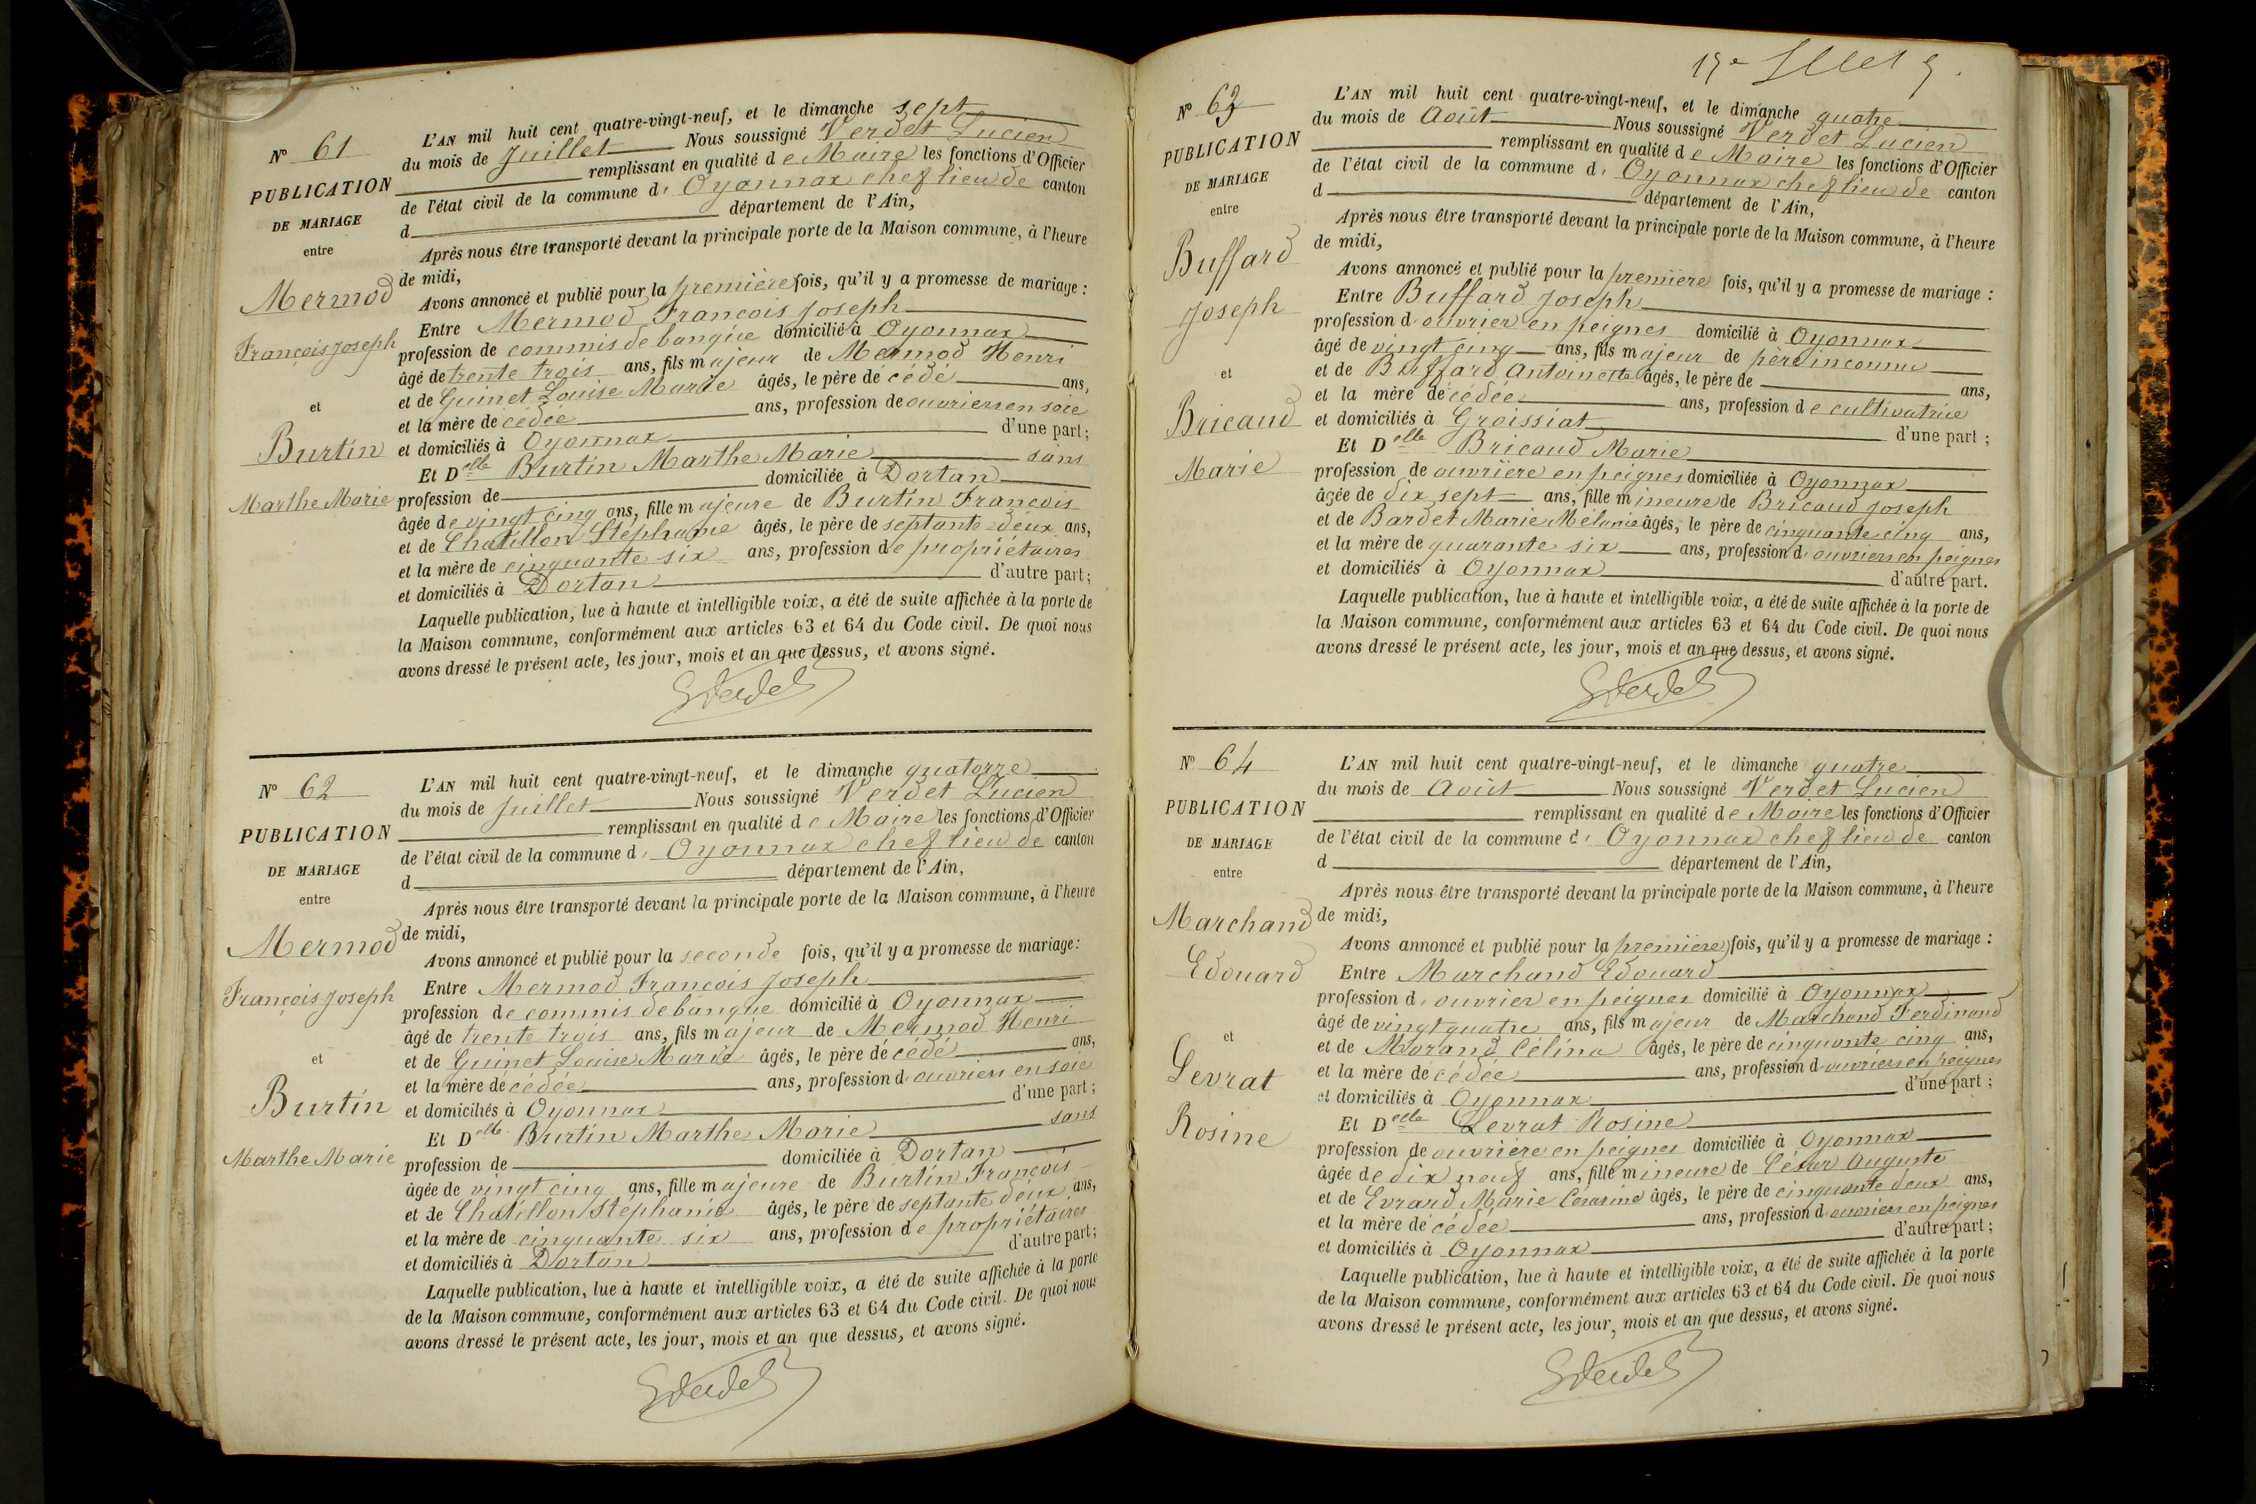 N° 61
PUBLICATION
DE MARIAGE
entre
Mermod
François Joseph
et
Burtin
Marthe Marie
L'AN mil huit cent quatre-vingt-neuf, et le dimanche sept
du mois de Juillet Nous soussigné Verdet Lucien
remplissant en qualité de Maire les fonctions d'Officier
de l'état civil de la commune d' Oyonnax chef lieu de canton
d département de l'Ain,
Après nous être transporté devant la principale porte de la Maison commune, à l'heure
de midi,
Avons annoncé et publié pour la première fois, qu'il y a promesse de mariage :
Entre Mermod François Joseph
profession de commis de banque domicilié à Oyonnax
âgé de trente trois ans, fils majeur de Mermod Henri
et de Guinet Louise Marie âgés, le père décédé ans,
et la mère décédée ans, profession de ouvriers en soie
et domiciliés à Oyonnax d'une part ;
Et Delle Burtin Marthe Marie sans
profession de domiciliée à Dortan
âgée de vingt cinq ans, fille majeure de Burtin François
et de Chatillon Stéphanie âgés, le père de septante-deux ans,
et la mère de cinquante six ans, profession de propriétaires
et domiciliés à Dortan d'autre part ;
Laquelle publication, lue à haute et intelligible voix, a été de suite affichée à la porte de
la Maison commune, conformément aux articles 63 et 64 du Code civil. De quoi nous
avons dressé le présent acte, les jour, mois et an que dessus, et avons signé.
N° 62
PUBLICATION
DE MARIAGE
entre
Mermod
François Joseph
et
Burtin
Marthe Marie
L'AN mil huit cent quatre-vingt-neuf, et le dimanche quatorze
du mois de Juillet Nous soussigné Verdet Lucien
remplissant en qualité de Maire les fonctions d'Officier
de l'état civil de la commune d' Oyonnax chef lieu de canton
d département de l'Ain,
Après nous être transporté devant la principale porte de la Maison commune, à l'heure
de midi,
Avons annoncé et publié pour la seconde fois, qu'il y a promesse de mariage :
Entre Mermod François Joseph
profession de commis de banque domicilié à Oyonnax
âgé de trente trois ans, fils majeur de Mermod Henri
et de Guinet Louise Marie âgés, le père décédé ans,
et la mère décédée ans, profession d ouvriers en soie
et domiciliés à Oyonnax d'une part ;
Et Delle Burtin Marthe Marie sans
profession de domiciliée à Dortan
âgée de vingt cinq ans, fille majeure de Burtin François
et de Chatillon Stéphanie âgés, le père de septante deux ans,
et la mère de cinquante six ans, profession de propriétaires
et domiciliés à Dortan d'autre part ;
Laquelle publication, lue à haute et intelligible voix, a été de suite affichée à la porte
de la Maison commune, conformément aux articles 63 et 64 du Code civil. De quoi nous
avons dressé le présent acte, les jour, mois et an que dessus, et avons signé.
N° 63
PUBLICATION
DE MARIAGE
entre
Buffard
Joseph
et
Bricaud
Marie
L'AN mil huit cent quatre-vingt-neuf, et le dimanche quatre
du mois de Août Nous soussigné Verdet Lucien
remplissant en qualité de Maire les fonctions d'Officier
de l'état civil de la commune d' Oyonnax chef lieu de canton
d département de l'Ain,
Après nous être transporté devant la principale porte de la Maison commune, à l'heure
de midi,
Avons annoncé et publié pour la première fois, qu'il y a promesse de mariage :
Entre Buffard Joseph
profession d' ouvrier en peignes domicilié à Oyonnax
âgé de vingt cinq ans, fils majeur de père inconnu
et de Buffard Antoinette âgés, le père de ans,
et la mère décédée ans, profession de cultivatrice
et domiciliés à Groissiat d'une part ;
Et Delle Bricaud Marie
profession de ouvrière en peignes domiciliée à Oyonnax
âgée de dix sept ans, fille mineure de Bricaud Joseph
et de Bardet Marie Mélanie âgés, le père de cinquante cinq ans,
et la mère de quarante six ans, profession d' ouvriers en peignes
et domiciliés à Oyonnax d'autre part.
Laquelle publication, lue à haute et intelligible voix, a été de suite affichée à la porte de
la Maison commune, conformément aux articles 63 et 64 du Code civil. De quoi nous
avons dressé le présent acte, les jour, mois et an que dessus, et avons signé.
N° 64
PUBLICATION
DE MARIAGE
entre
Marchand
Edouard
et
Levrat
Rosine
L'AN mil huit cent quatre-vingt-neuf, et le dimanche quatre
du mois de Août Nous soussigné Verdet Lucien
remplissant en qualité de Maire les fonctions d'Officier
de l'état civil de la commune d' Oyonnax chef lieu de canton
d département de l'Ain,
Après nous être transporté devant la principale porte de la Maison commune, à l'heure
de midi,
Avons annoncé et publié pour la première fois, qu'il y a promesse de mariage :
Entre Marchand Edouard
profession d' ouvrier en peignes domicilié à Oyonnax
âgé de vingt quatre ans, fils majeur de Marchand Ferdinand
et de Morand Célina âgés, le père de cinquante cinq ans,
et la mère décédée ans, profession d ouvriers en peignes
et domiciliés à Oyonnax d'une part ;
Et Delle Levrat Rosine
profession de ouvrière en peignes domiciliée à Oyonnax
âgée de dix neuf ans, fille mineure de César Auguste
et de Evrard Marie âgés, le père de cinquante deux ans,
et la mère décédée ans, profession d ouvriers en peignes
et domiciliés à Oyonnax d'autre part ;
Laquelle publication, lue à haute et intelligible voix, a été de suite affichée à la porte
de la Maison commune, conformément aux articles 63 et 64 du Code civil. De quoi nous
avons dressé le présent acte, les jour, mois et an que dessus, et avons signé.